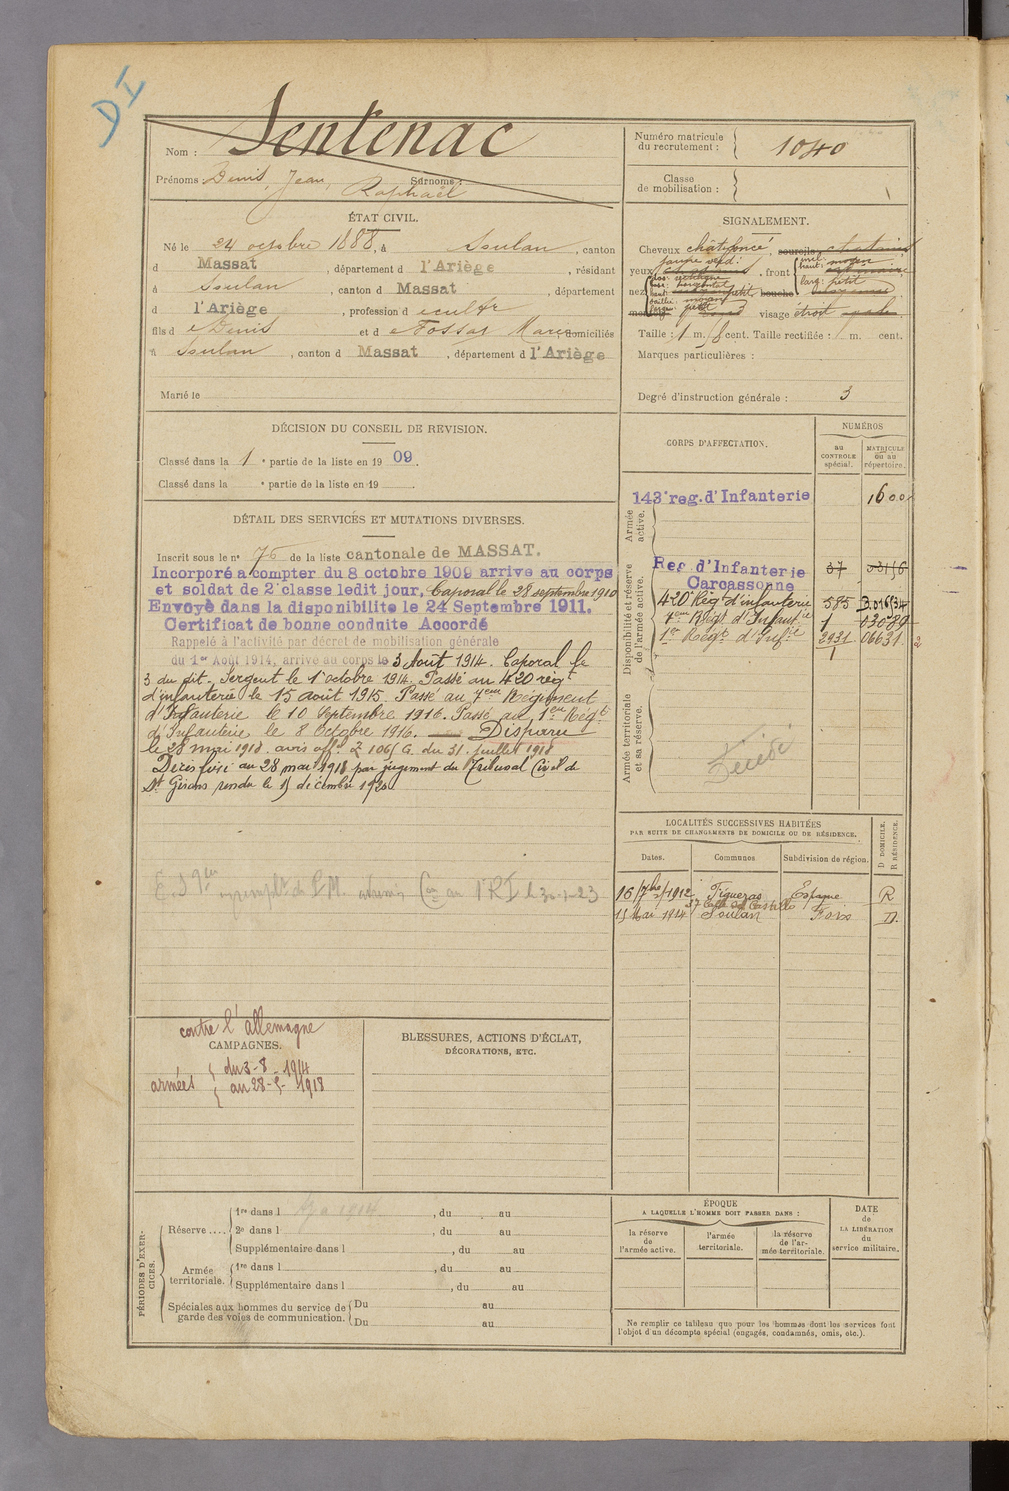 DI
Nom : Sentenac
Prénoms : Denis, Jean, Raphaël Surnoms :
Numéro matricule du recrutement : 1040
Classe de mobilisation :
ÉTAT CIVIL.
Né le 24 octobre 1888, à Soulan, canton
d Massat, département d l'Ariège, résidant
à Soulan, canton d Massat, département
d l'Ariège, profession d cultr
fils d e Denis et d e Fossat Marie domiciliés
à Soulan, canton d Massat, département d l'Ariège
Marié le
SIGNALEMENT.
Cheveux chât foncé, sourcils châtains
yeux jaune verd : front incl: moyen haut: larg: petit
nez dos: rectiligne base: haut: petite saillie: moyen larg: petit bouche
visage étroit
Taille : 1 m. cent. Taille rectifiée : m. cent.
Marques particulières :
Degré d'instruction générale : 3
DÉCISION DU CONSEIL DE REVISION.
Classé dans la 1e partie de la liste en 1909.
Classé dans la e partie de la liste en 19
CORPS D'AFFECTATION.
NUMÉROS
au CONTROLE spécial.
MATRICULE ou au répertoire.
Armée active.
143e reg. d'Infanterie 1600
Disponibilité et réserve de l'armée active.
Reg d'Infanterie Carcassonne 37
420e Régt d'infanterie 585
4eme Régt d'Infantie 1
1er Régt d'Infie 2931 06631
1
2
Armée territoriale et sa réserve.
Décédé
DÉTAIL DES SERVICES ET MUTATIONS DIVERSES.
Inscrit sous le n° 76 de la liste cantonale de MASSAT.
Incorporé a compter du 8 octobre 1909 arrive au corps
et soldat de 2e classe ledit jour, Caporal le 28 septembre 1910
Envoyé dans la disponibilite le 24 Septembre 1911.
Certificat de bonne conduite Accordé
Rappelé à l'activité par décret de mobilisation générale
du 1er Août 1914, arrive au corps le 3 Août 1914. Caporal le
3 du dit. Sergent le 1er octobre 1914. Passé au 420 régt
d'infanterie le 15 août 1915. Passé au 4eme Régiment
d'Infanterie le 10 Septembre 1916. Passé au 1er Régt
d'Infanterie, le 8 Octobre 1916. — Disparu
le 28 mai 1918. avis offl. Z 106 G. du 31 juillet 1918
Décès fixé au 28 mai 1918 par jugement du Tribunal Civil de
St Girons rendu le 15 décembre 1920
au 1er RI
LOCALITÉS SUCCESSIVES HABITÉES
PAR SUITE DE CHANGEMENTS DE DOMICILE OU DE RÉSIDENCE.
Dates. Communes Subdivision de région. D DOMICILE. R RÉSIDENCE.
16 7bre 1912 Figueras Espagne R
37 Calle del Castillo
15 Mai 1914 Soulan Foix D.
contre l'allemagne
CAMPAGNES.
armées { du 3-8-1914
au 28-5-1918
BLESSURES, ACTIONS D'ÉCLAT,
DÉCORATIONS, ETC.
PÉRIODES D'EXERCICES.
Réserve....
1re dans l , du au
2e dans l , du au
Supplémentaire dans l , du au
Armée territoriale.
1re dans l , du au
Supplémentaire dans l , du au
Spéciales aux hommes du service de garde des voies de communication.
Du au
Du au
ÉPOQUE
A LAQUELLE L'HOMME DOIT PASSER DANS :
la réserve de l'armée active.
l'armée territoriale.
la réserve de l'armée territoriale.
DATE de LA LIBÉRATION du service militaire.
Ne remplir ce tableau que pour les hommes dont les services font
l'objet d'un décompte spécial (engagés, condamnés, omis, etc.).